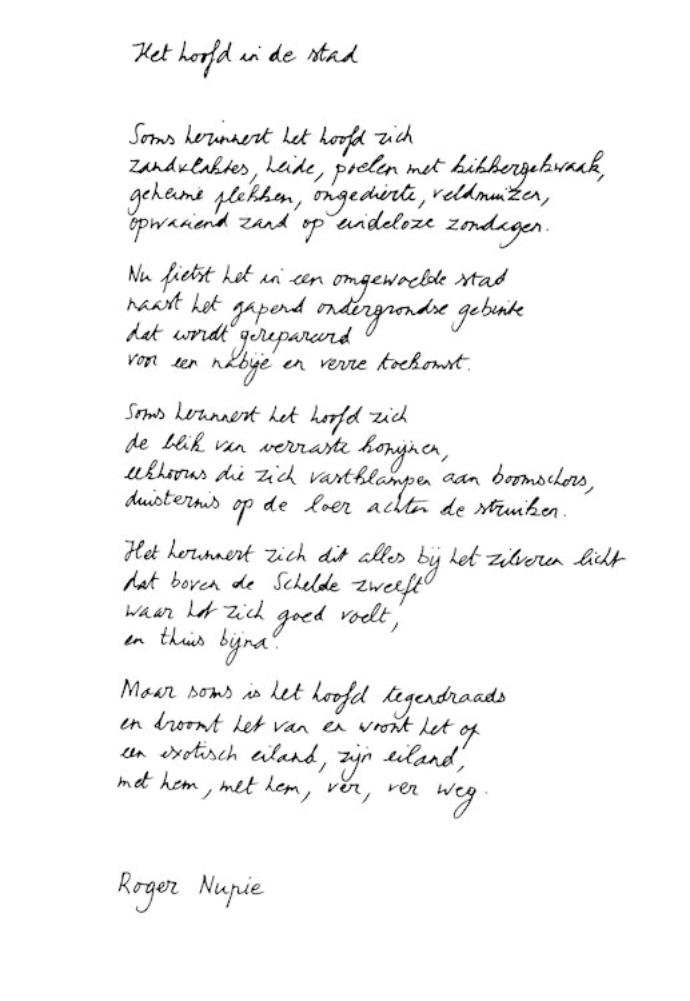 Het hoofd in de stad
Soms herinnert het hoofd zich
zandvlaktes, heide, poelen met kikkergekwaak,
geheime plekken, ongedierte, veldmuizen,
opwaaiend zand op eindeloze zondagen.
Nu fietst het in een omgewoelde stad
naast het gapend ondergrondse gebinte
dat wordt gerepareerd
voor een nabije en verre toekomst.
Soms herinnert het hoofd zich
de blik van verraste konijnen,
eekhoorns die zich vastklampen aan boomschors,
duisternis op de loer achter de struiken.
Het herinnert zich dit alles bij het zilveren licht
dat boven de Schelde zweeft
waar het zich goed voelt,
en thuis bijna.
Maar soms is het hoofd tegendraads
en droomt het van en woont het op
een exotisch eiland, zijn eiland,
met hem, met hem, ver, ver weg.
Roger Nupie